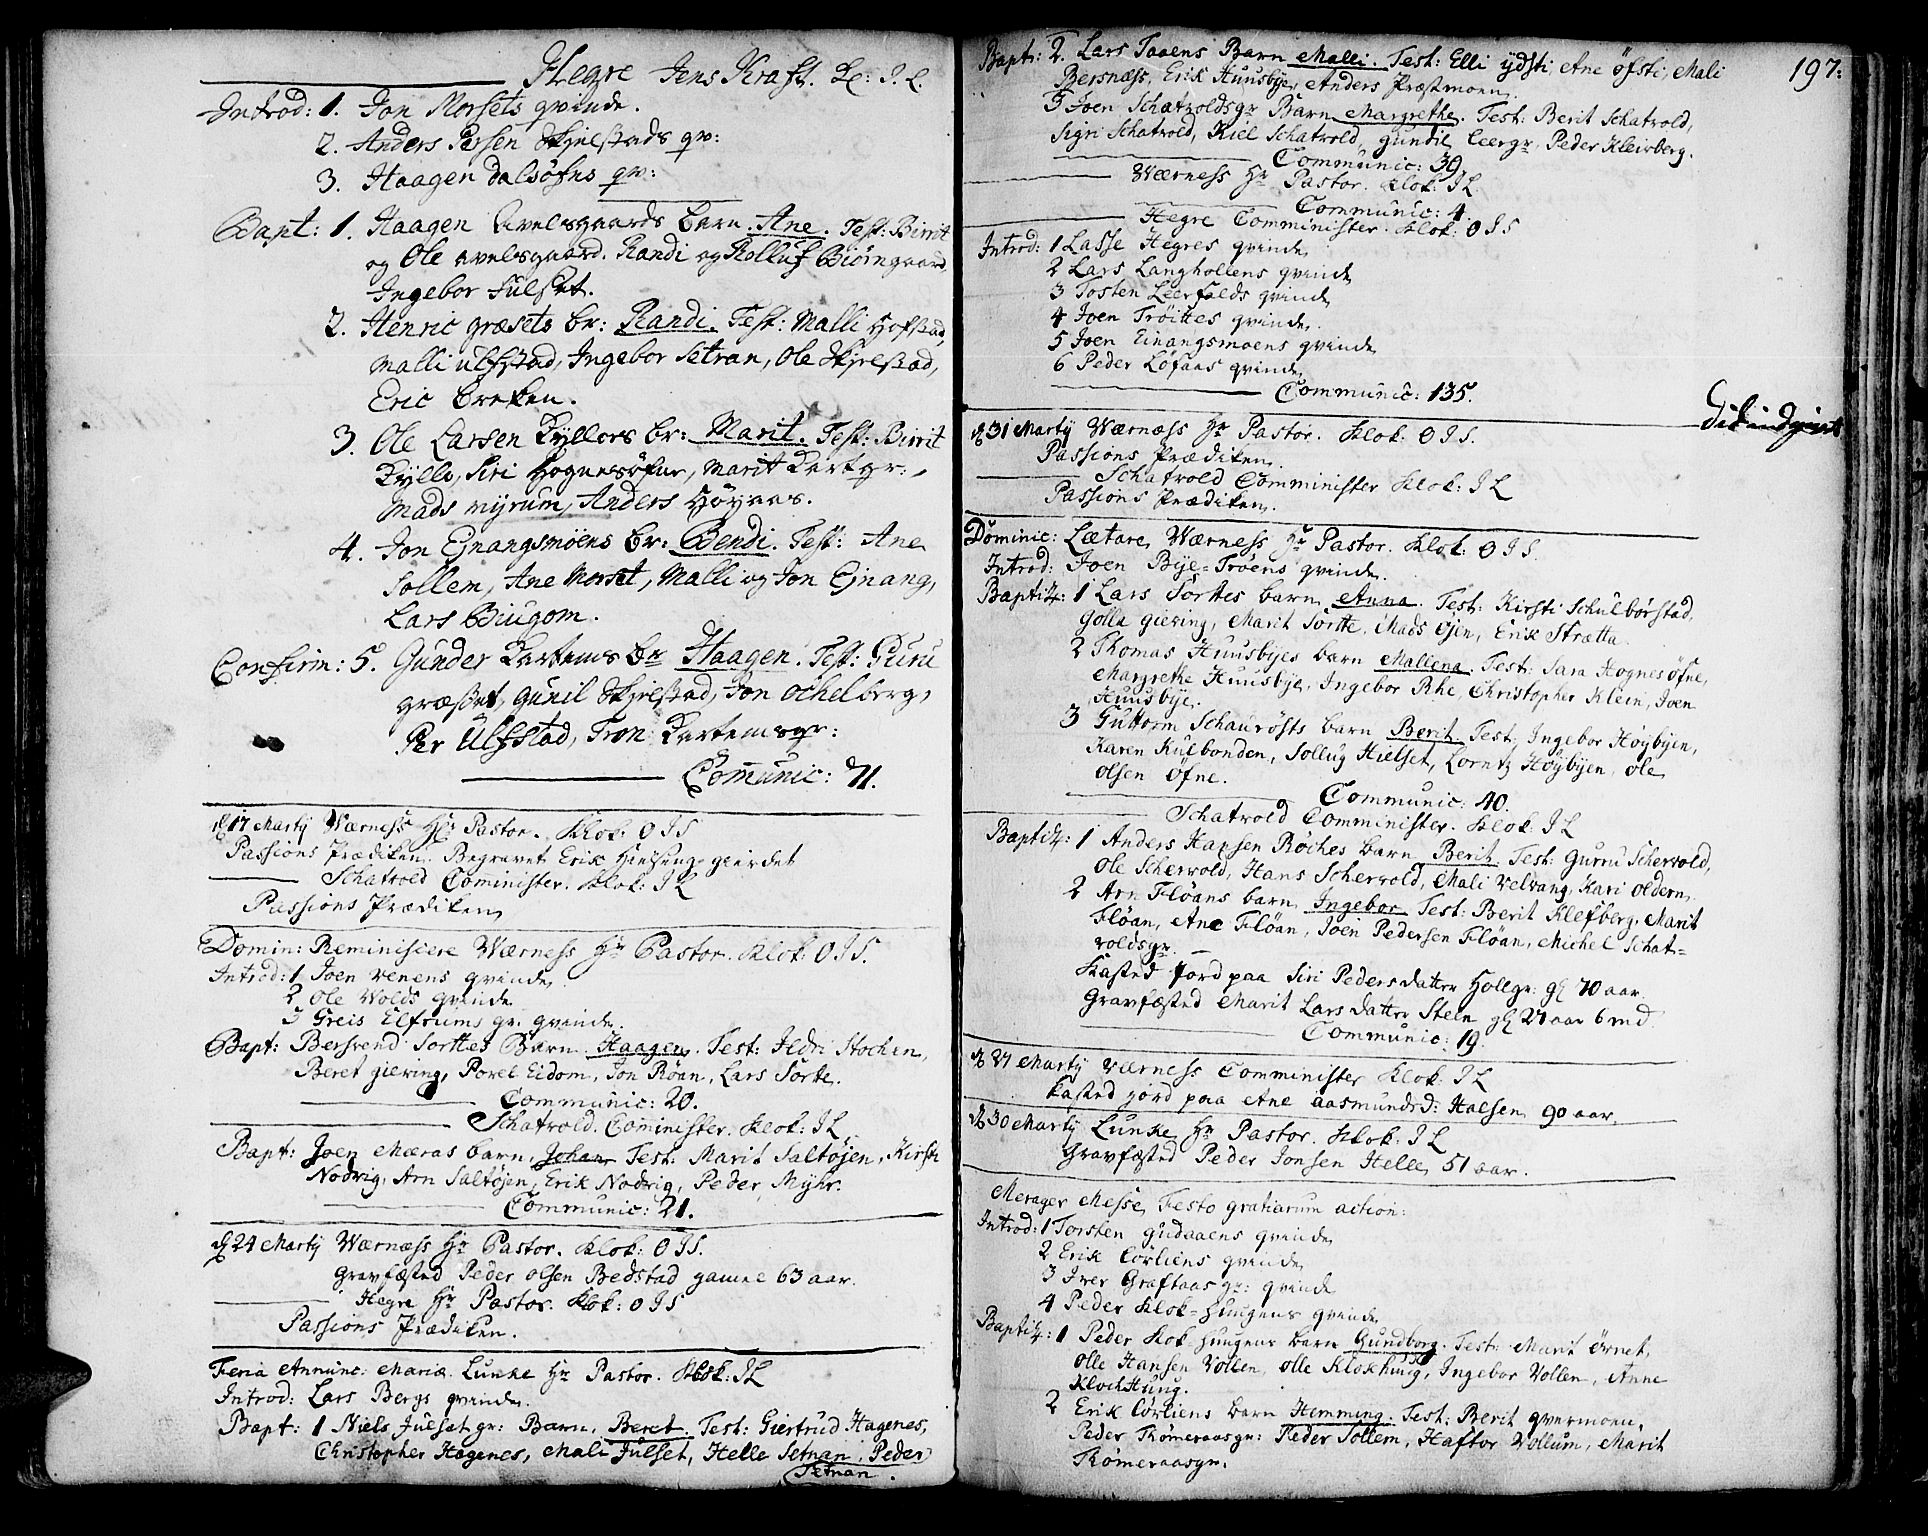 Hegre Jens Kraft. Kl: J. L.
Introd: 1. Jon Morsets qvinde.
2. Anders Persen Skjelstads qv:
3. Haagen Dalsöfns qv:
Bapt: 1. Haagen Avelsgaards barn. Ane. Test: Birrit
og Ole avelsgaard. Randi og Rolluf Biörngaard,
Ingebor Julset.
2. Henric græsets br: Randi. Test: Malli Hofstad,
Malli Ulfstad, Ingebor Setran, Ole Skjelstad,
Eric Breken.
3. Ole Larsen Kyllos br: Marit. Test: Birrit
Kyllo, Siri Hognesöfne, Marit Kartgr:,
Mads myrum, Anders Höyaas.
4. Jon Ejnangsmöens br: Bendi. Test: Ane
Sollem, Ane Morset, Malli og Jon Ejnang,
Lars Biugom.
Confirm: 5. Gunder Kartems br Haagen. Test: Guru
græset, Gunil Skjelstad, Jon Ochelberg,
Per Ulfstad, Tron Kartemsgr:
Communic: 71.
17 Marty Wærness Hr Pastor. Klok: O I S
Passions Prædiken. Begravet Erik
Schatvold Cominister. Klok: I L
Passions Prædiken
Domin: Reminiscere Wærness Hr Pastor. Klok: O I S.
Introd: 1 Joen venens qvinde
2 Ole Wolds qvinde
3 Greis Elfrums gr: qvinde.
Bapt: Bersvend Sorttes Barn Haagen. Test: Jldri Stochen,
Beret giering, Povel Eidom, Jon Röan, Lars Sorte.
Communic: 20.
Schatvold. Cominister. Klok: I L.
Bapt: Joen Mæraas barn, Johan Test: Marit Saltöjen, Kirsti
Nodvig, Arn Saltöjen, Erik Nodvig, Peder Myhr.
Communic: 21.
24 Marty Wærness Hr Pastor. Klok: O I S.
Gravfæsted Peder Olsen Bedstad gamel 63 aar.
Hegre Hr Pastor. Klok: O I S
Passions Prædiken.
Feria Annunc: Mariæ. Lunke Hr Pastor. Klok: I L
Introd: Lars Bergs qvinde.
Bapt: 1 Niels Julset gr: Barn, Beret. Test: Giertrud Hagenes,
Christopher Hagenes, Mali Julset, Helle Setnan, Peder
Setnan.
197:
Bapt: 2. Lars Taaens Barn Malli. Test: Elli ydsti, Ane öfsti, Mali
Bersnæss, Erik Huusbye, Anders Præstmoen.
3 Joen Schatvoldsgr Barn Margrethe. Test: Berit Schatvold,
Sigri Schatvold, Kiel Schatvold, Gundil Leergr, Peder Kleivberg.
Communic: 39
Wærness Hr Pastor. Klok: I L.
Communic: 4.
Hegre Comminister. Klok: O I S
Introd: 1 Lasse Hegres qvinde
2 Lars Langhollens qvinde
3 Tosten Leerfalds qvinde
4 Joen Tröittes qvinde.
5 Joen Einangsmoens qvinde
6 Peder Löfaas qvinde
Communic: 135.
31 Marty Wærness Hr Pastor. Klok: O I S.
Passions Prædiken.
Schatvold Comminister Klok: I L
Passions Prædiken.
Dominic: Lætare, Wærness Hr Pastor. Klok: O I S.
Introd: Joen Bye-Tröens qvinde.
Baptiz: 1 Lars Sorttes barn Anna. Test: Kirsti Schulbörstad,
Golla giering, Marit Sortte, Mads Öjen, Erik Strætta.
2 Thomas Huusbÿes barn Mallena. Test: Sara Hognesöfne,
Margrethe Huusbÿe, Ingebor Rhe, Christopher Klein, Joen
Huusbÿe.
3 Guttorm Schauröfts barn Berit. Test: Ingebor Höybÿen,
Karen Kulbonden, Sollug Hielset, Lorntz Höybÿen, Ole
Olsen Öfne.
Communic: 40.
Schatvold Comminister. Klok: I L
Baptiz: 1 Anders Hansen Röches barn Berit. Test: Guru Schervold,
Ole Schervold, Hans Schervold, Mali Velvang, Kari Oldern.
2 Arn Flöans barn, Ingebor Test: Berit Klefberg, Marit
Flöan, Ane Flöan, Joen Pedersen Flöan, Michel Schat-
voldsgr.
Kasted Jord paa Siri Pedersdatter Hollgr: gl 70 aar.
Gravfæsted Marit Larsdatter Steen gl 27 aar 6 md
Communic: 19.
27 Marty Værness Comminister Klok: I L
kasted jord paa Ane Aasmundsd: Halsen 90 aar.
30 Marty Lunke Hr Pastor. Klok: I L
Gravfæsted Peder Jonsen Helle, 51 aar.
Merager Messe, Festo gratiarum action:
Introd: 1 Torsten Gudaaens qvinde
2 Erik Cörliens qvinde
3 Iver Graftaasgr: qvinde
4 Peder Klok-Huugens qvinde
Baptiz: 1 Peder Klok Huugens barn Gundborg. Test: Marit Örnet,
Olle Hansen Vollen, Olle Klokhuug, Ingebor Vollen, Anne
KlochHuug.
2 Erik Cörliens barn Hemming. Test: Berit qvermoen,
Peder Römeraasgr: Peder Sollem, Haftor Vollum, Marit
Römeraasgr.